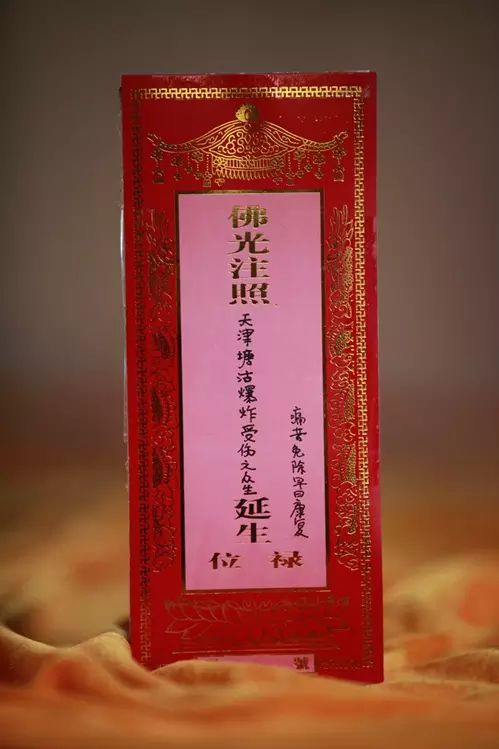 佛光注照
天津塘沽爆炸受伤之众生
延生
禄位
痛苦免除早日康复
號